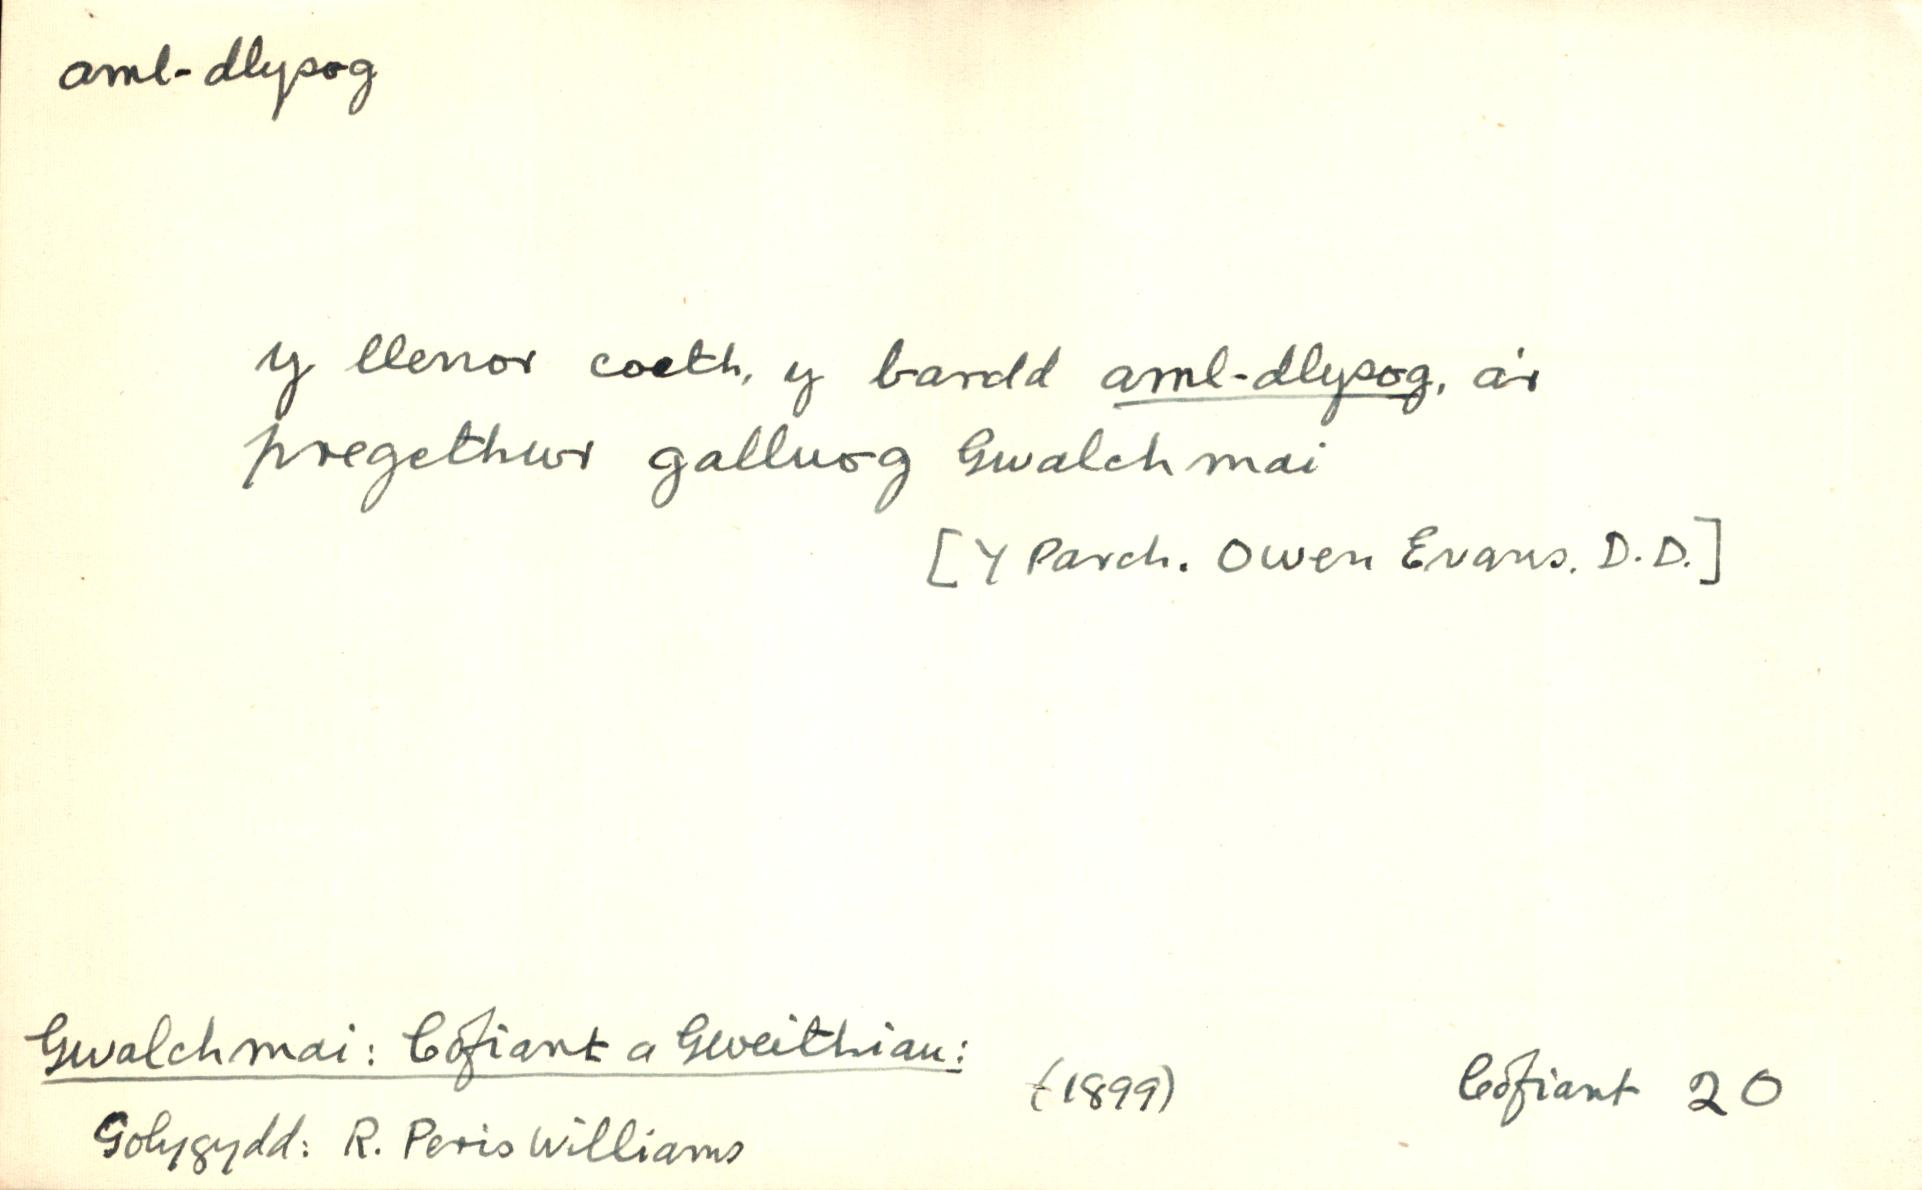 aml-dlysog
y llenor coeth, y bardd aml-dlysog, a'r
pregethwr galluog Gwalchmai
[Y Parch. Owen Evans. D.D.]
Gwalchmai: Cofiant a Gweithiau:
(1899)
Cofiant 20
Golygydd: R. Peris Williams